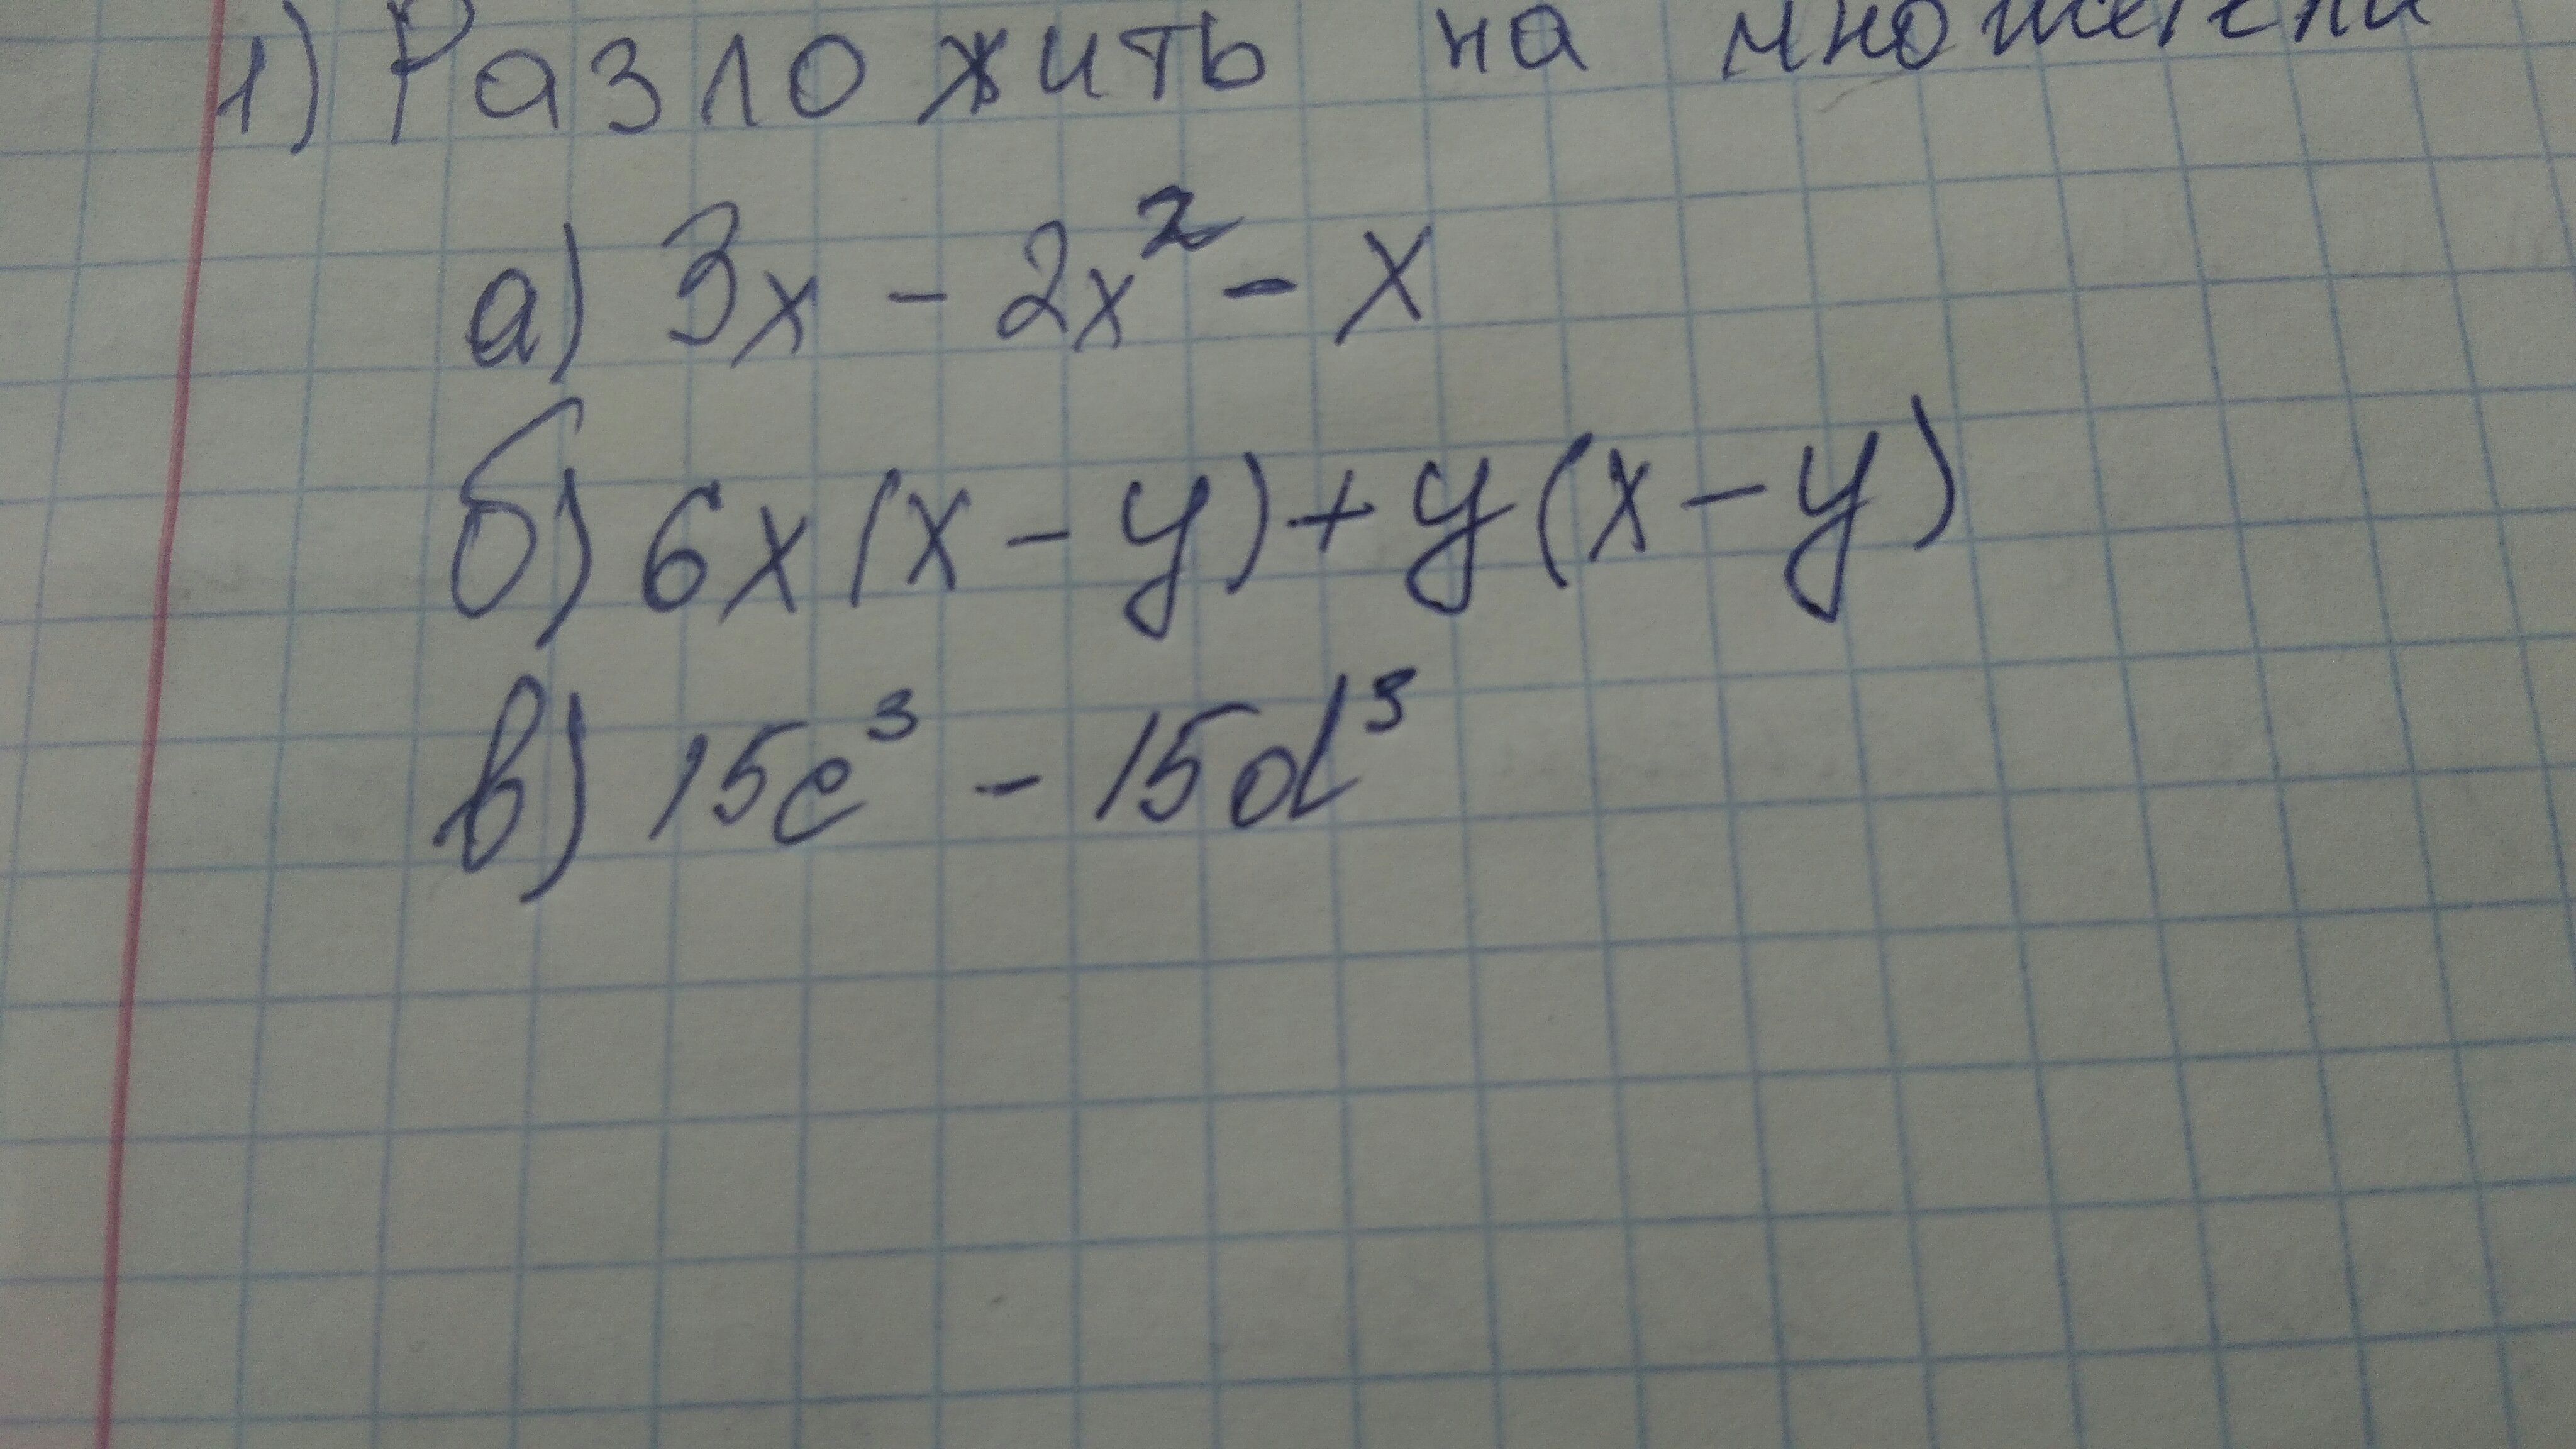 1) Разложить на множители
а) 3x - 2x² - x
б) 6x(x - y) + y(x - y)
в) 15c³ - 15d³